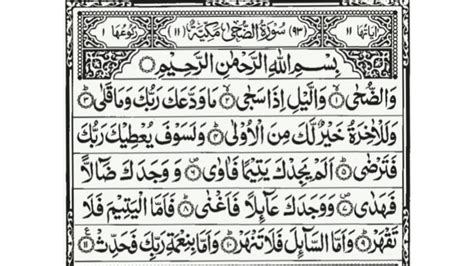 اٰيَاتُهَا ١١ (٩٣) سُوْرَةُ الضُّحٰى مَكِّيَّةٌ (١١) رُكُوْعُهَا ١
بِسْمِ اللّٰهِ الرَّحْمٰنِ الرَّحِيْمِ
وَالضُّحٰى ۙ١ وَالَّيْلِ اِذَا سَجٰى ۙ٢ مَا وَدَّعَكَ رَبُّكَ وَمَا قَلٰى ؕ٣
وَلَلْاٰخِرَةُ خَيْرٌ لَّكَ مِنَ الْاُوْلٰى ؕ٤ وَلَسَوْفَ يُعْطِيْكَ رَبُّكَ
فَتَرْضٰى ؕ٥ اَلَمْ يَجِدْكَ يَتِيْمًا فَاٰوٰى ۪٦ وَوَجَدَكَ ضَآلًّا
فَهَدٰى ۪٧ وَوَجَدَكَ عَآئِلًا فَاَغْنٰى ؕ٨ فَاَمَّا الْيَتِيْمَ فَلَا
تَقْهَرْ ؕ٩ وَاَمَّا السَّآئِلَ فَلَا تَنْهَرْ ؕ١٠ وَاَمَّا بِنِعْمَةِ رَبِّكَ فَحَدِّثْ ١١